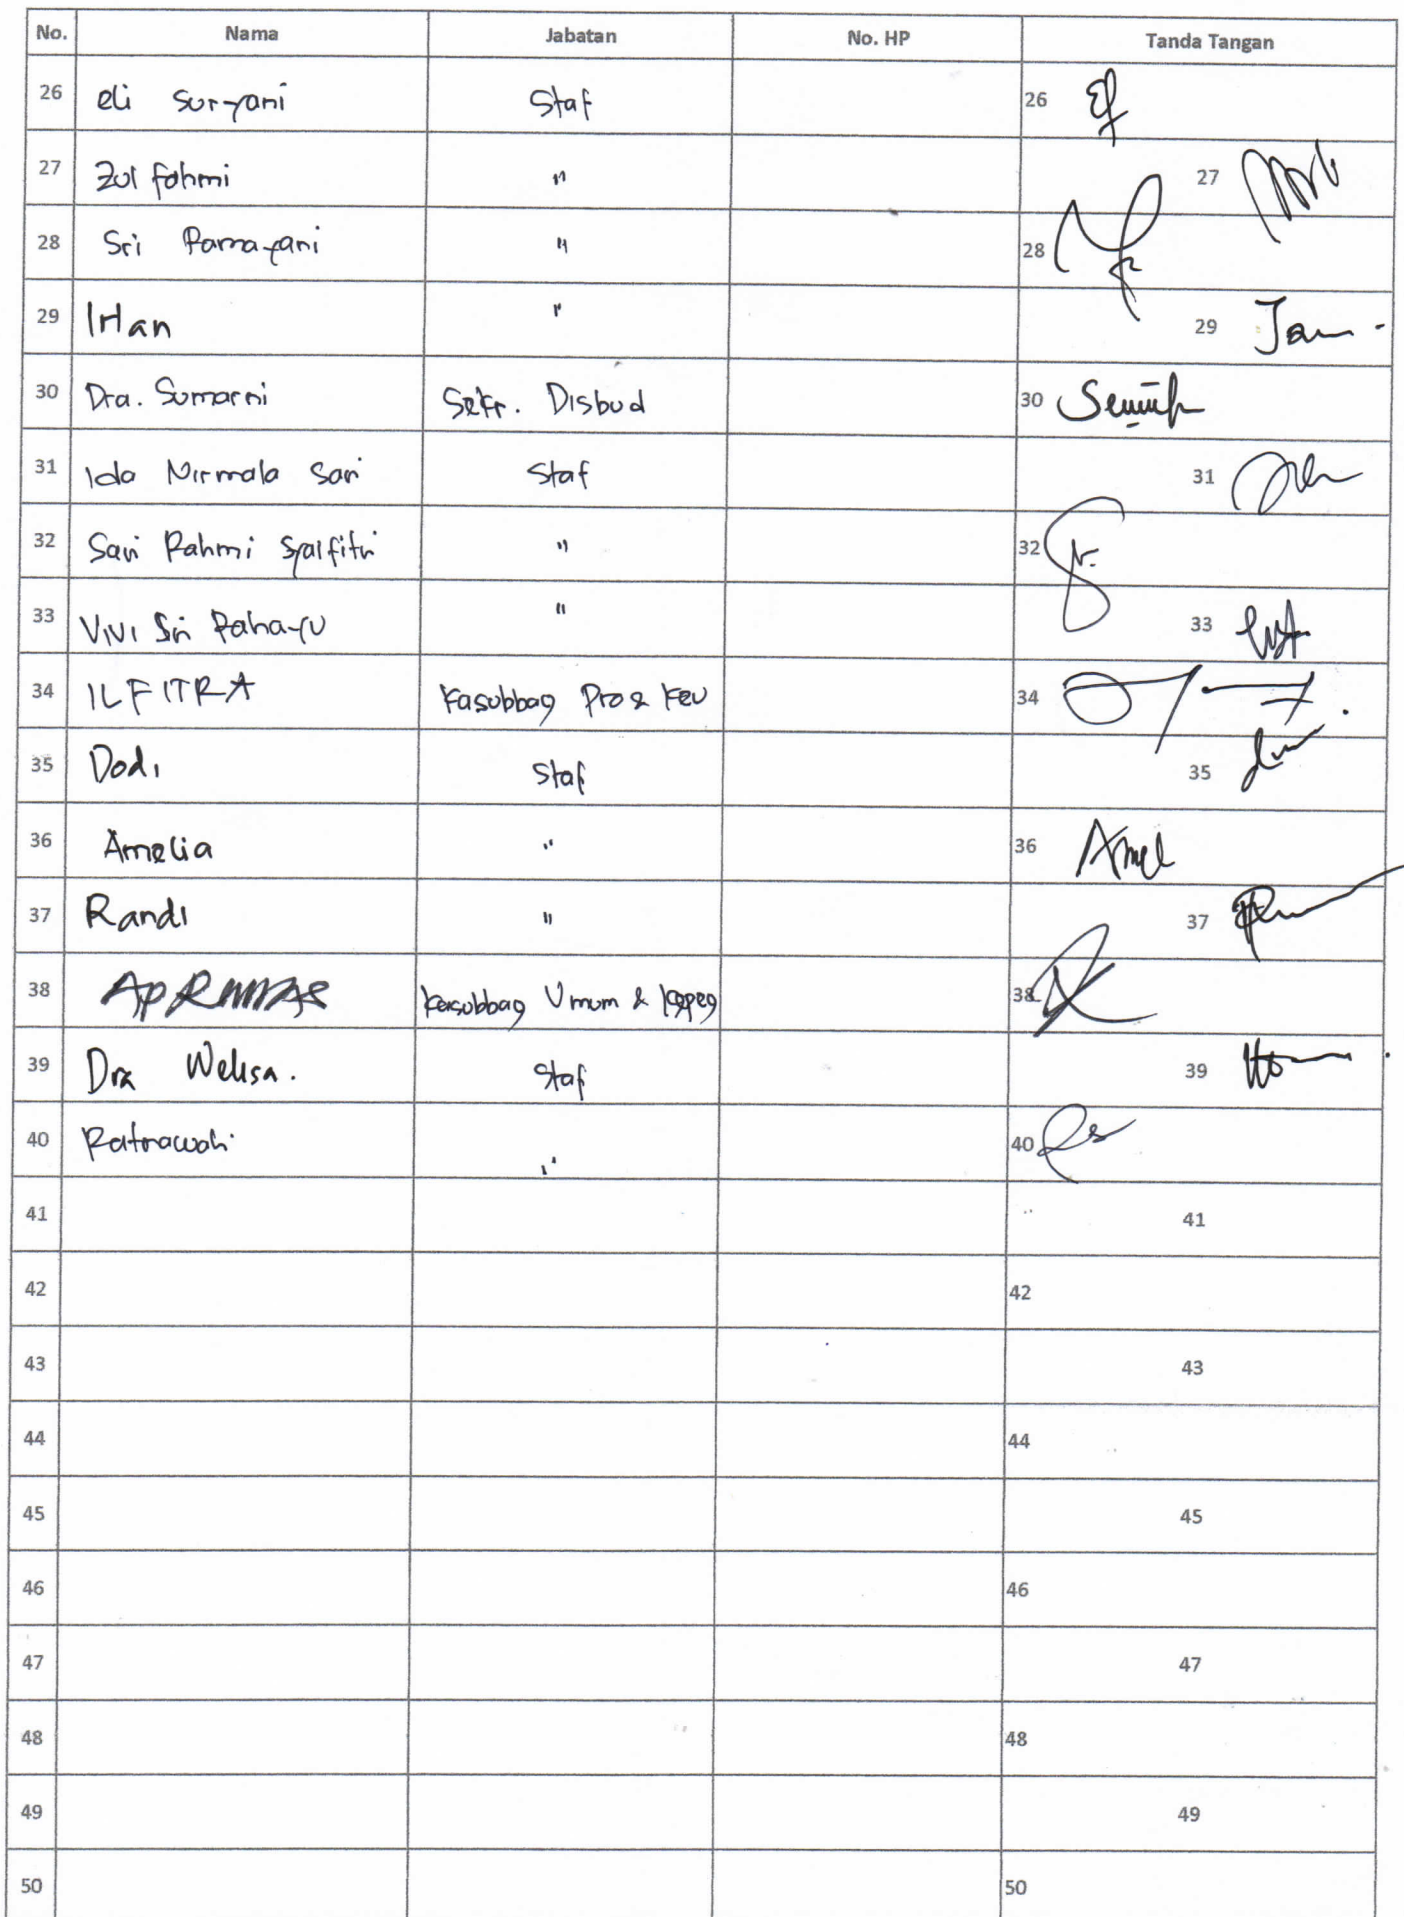 No. Nama Jabatan No. HP Tanda Tangan
26 eli Suryani Staf 26
27 Zul fahmi " 27
28 Sri Ramayani " 28
29 " 29
30 Dra. Sumarni Sekr. Disbud 30
31 Ida Nirmala Sari Staf 31
32 Sari Rahmi Syalfitri " 32
33 Vivi Sri Rahayu " 33
34 ILFITRA Kasubbag Pro & Keu 34
35 Dodi Staf 35
36 Amelia " 36 Amel
37 Randi " 37
38 Kasubbag Umum & Kepeg 38
39 Dra Welisa. Staf 39
40 Ratnawati " 40
41 41
42 42
43 43
44 44
45 45
46 46
47 47
48 48
49 49
50 50